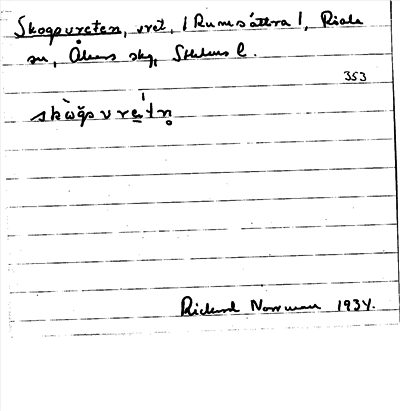 Skogsvreten, vret, (Rumsättra), Riala
sn, Åkers skg, Sthlms l.
353
skògsvre̱tn̥
Rickard Norrman 1934.